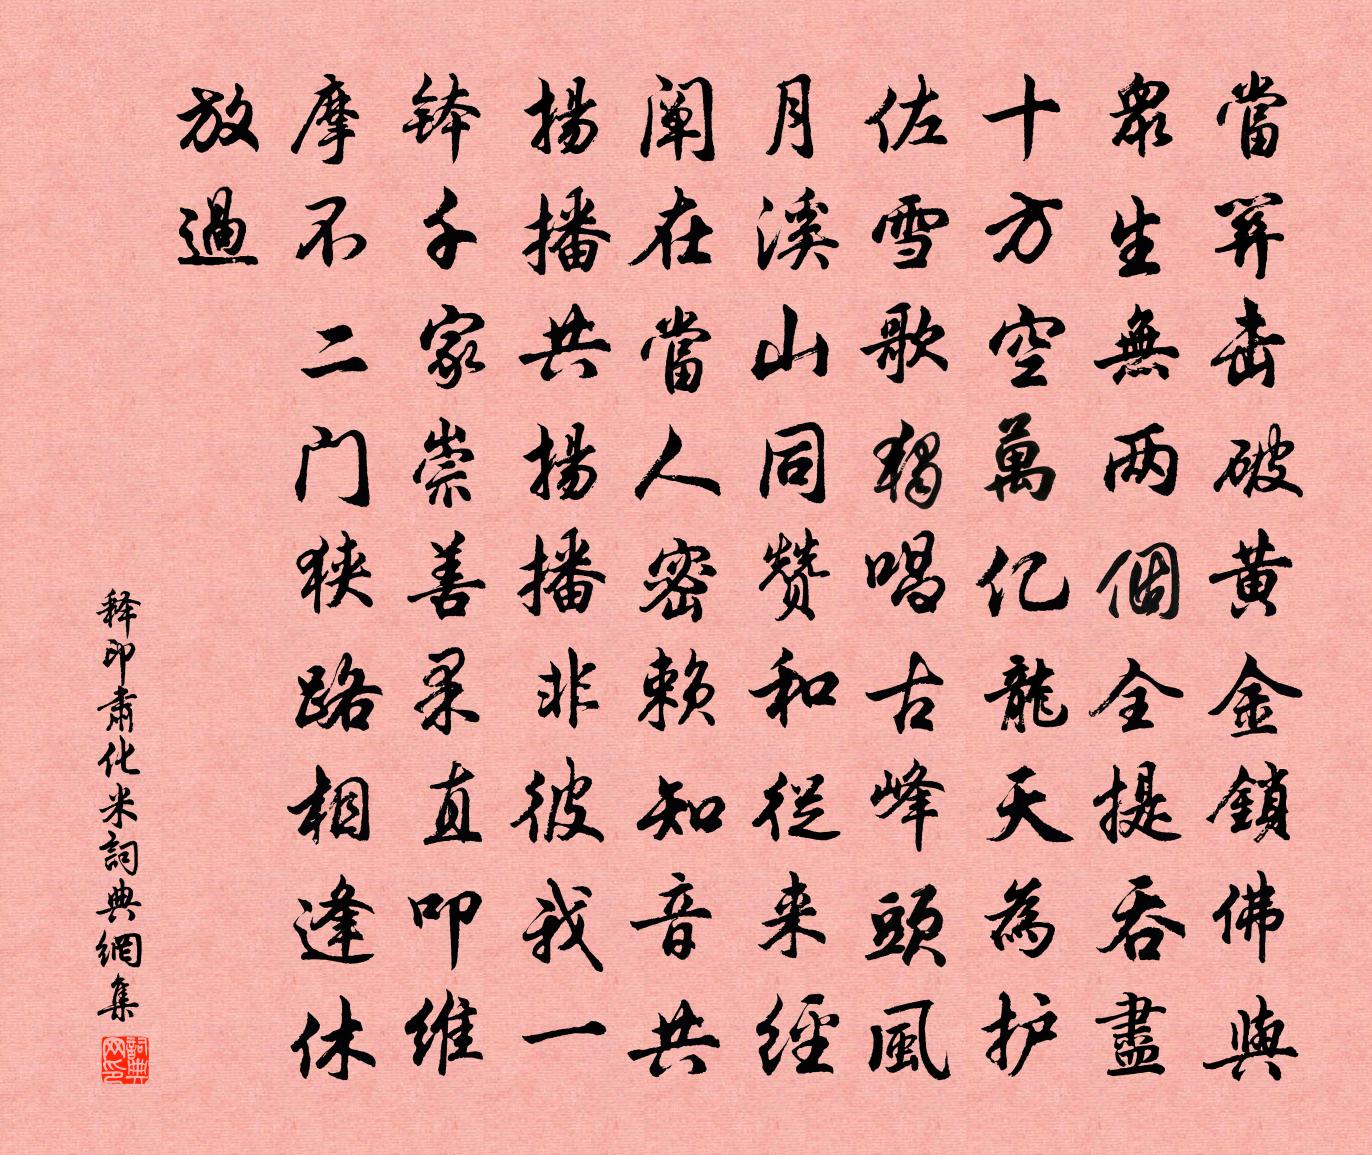 當開击破黄金鎖佛與
眾生無两個全提吞盡
十方空萬亿龍天為护
佐雪歌獨唱古峰頭風
月溪山同赞和從来經
阐在當人密赖知音共
揚播共揚播非彼我一
钵千家崇善果直叩維
摩不二门狭路相逢休
放過
释印肃化米詞典網集
詞典网印